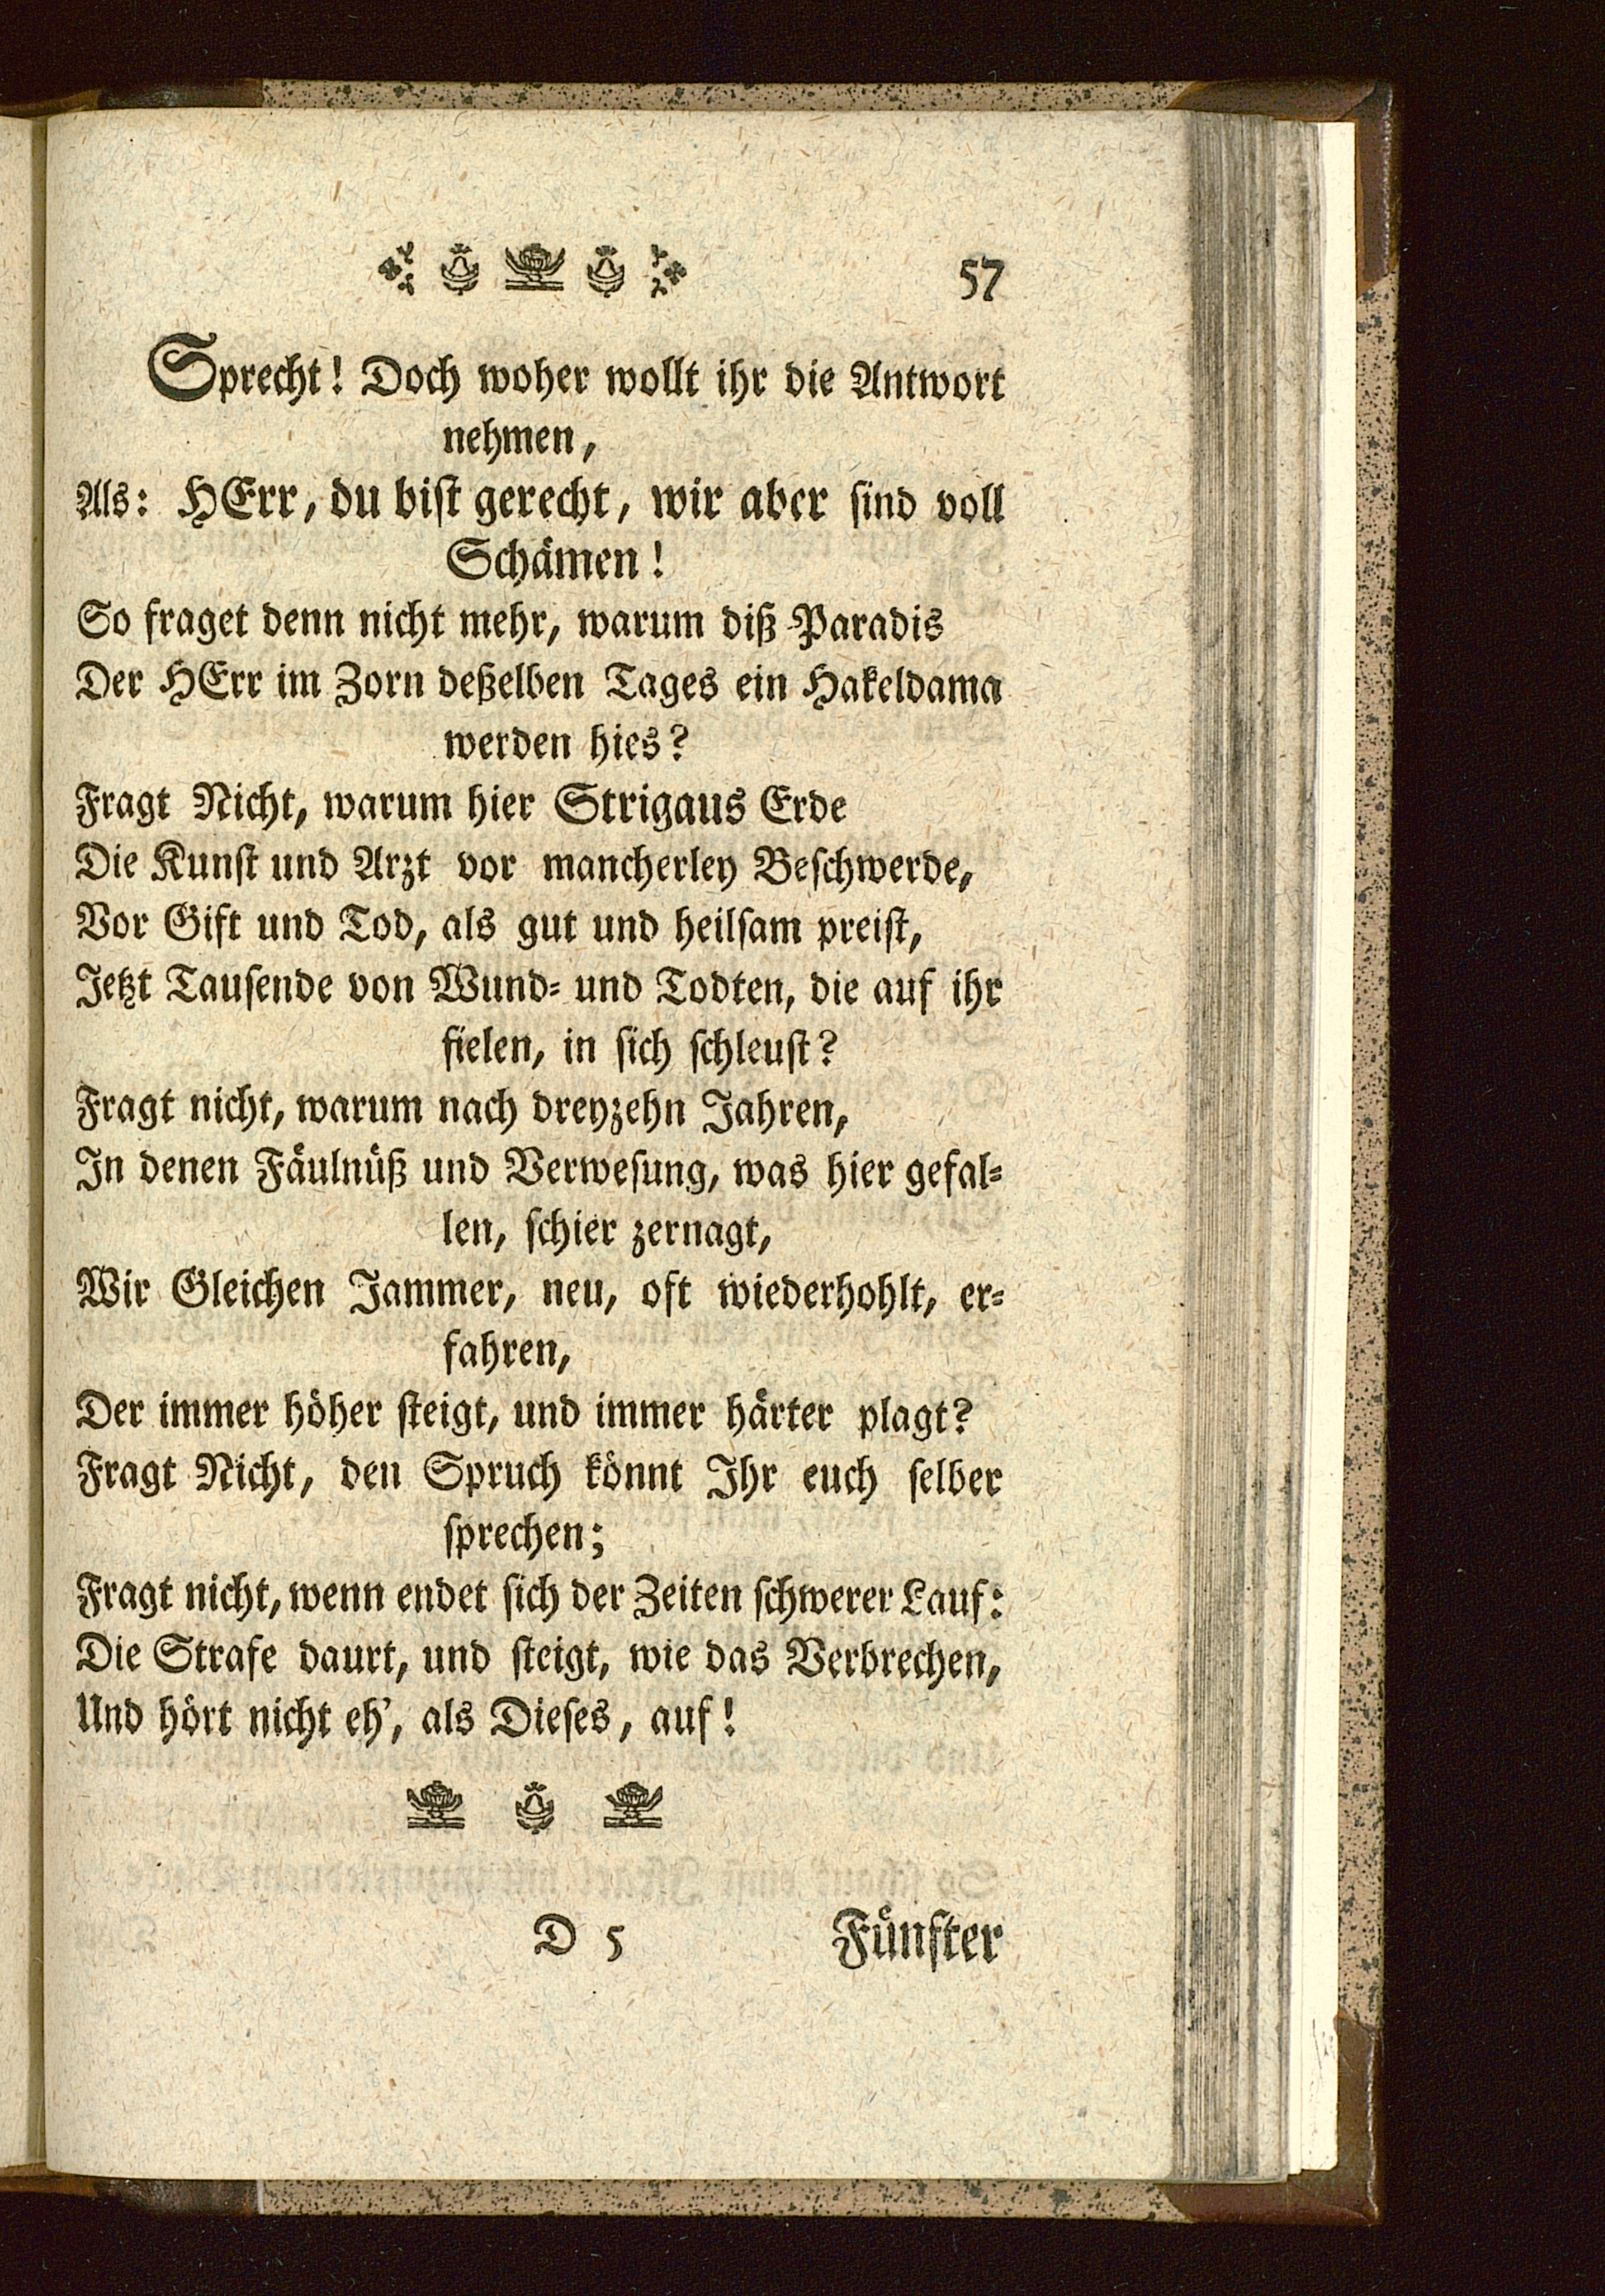 57
Sprecht! Doch woher wollt ihr die Antwort
nehmen,
Als: HErr, du biſt gerecht, wir aber ſind voll
Schämen!
So fraget denn nicht mehr, warum diß Paradis
Der HErr im Zorn deßelben Tages ein Hakeldama
werden hies?
Fragt Nicht, warum hier Strigaus Erde
Die Kunſt und Arzt vor mancherley Beſchwerde,
Vor Gift und Tod, als gut und heilſam preiſt,
Jetzt Tauſende von Wund- und Todten, die auf ihr
fielen, in ſich ſchleuſt?
Fragt nicht, warum nach dreyzehn Jahren,
In denen Fäulnüß und Verweſung, was hier gefal-
len, ſchier zernagt,
Wir Gleichen Jammer, neu, oft wiederhohlt, er-
fahren,
Der immer höher ſteigt, und immer härter plagt?
Fragt Nicht, den Spruch könnt Ihr euch ſelber
ſprechen;
Fragt nicht, wenn endet ſich der Zeiten ſchwerer Lauf:
Die Strafe daurt, und ſteigt, wie das Verbrechen,
Und hört nicht eh’, als Dieſes, auf!
D 5 Fünfter